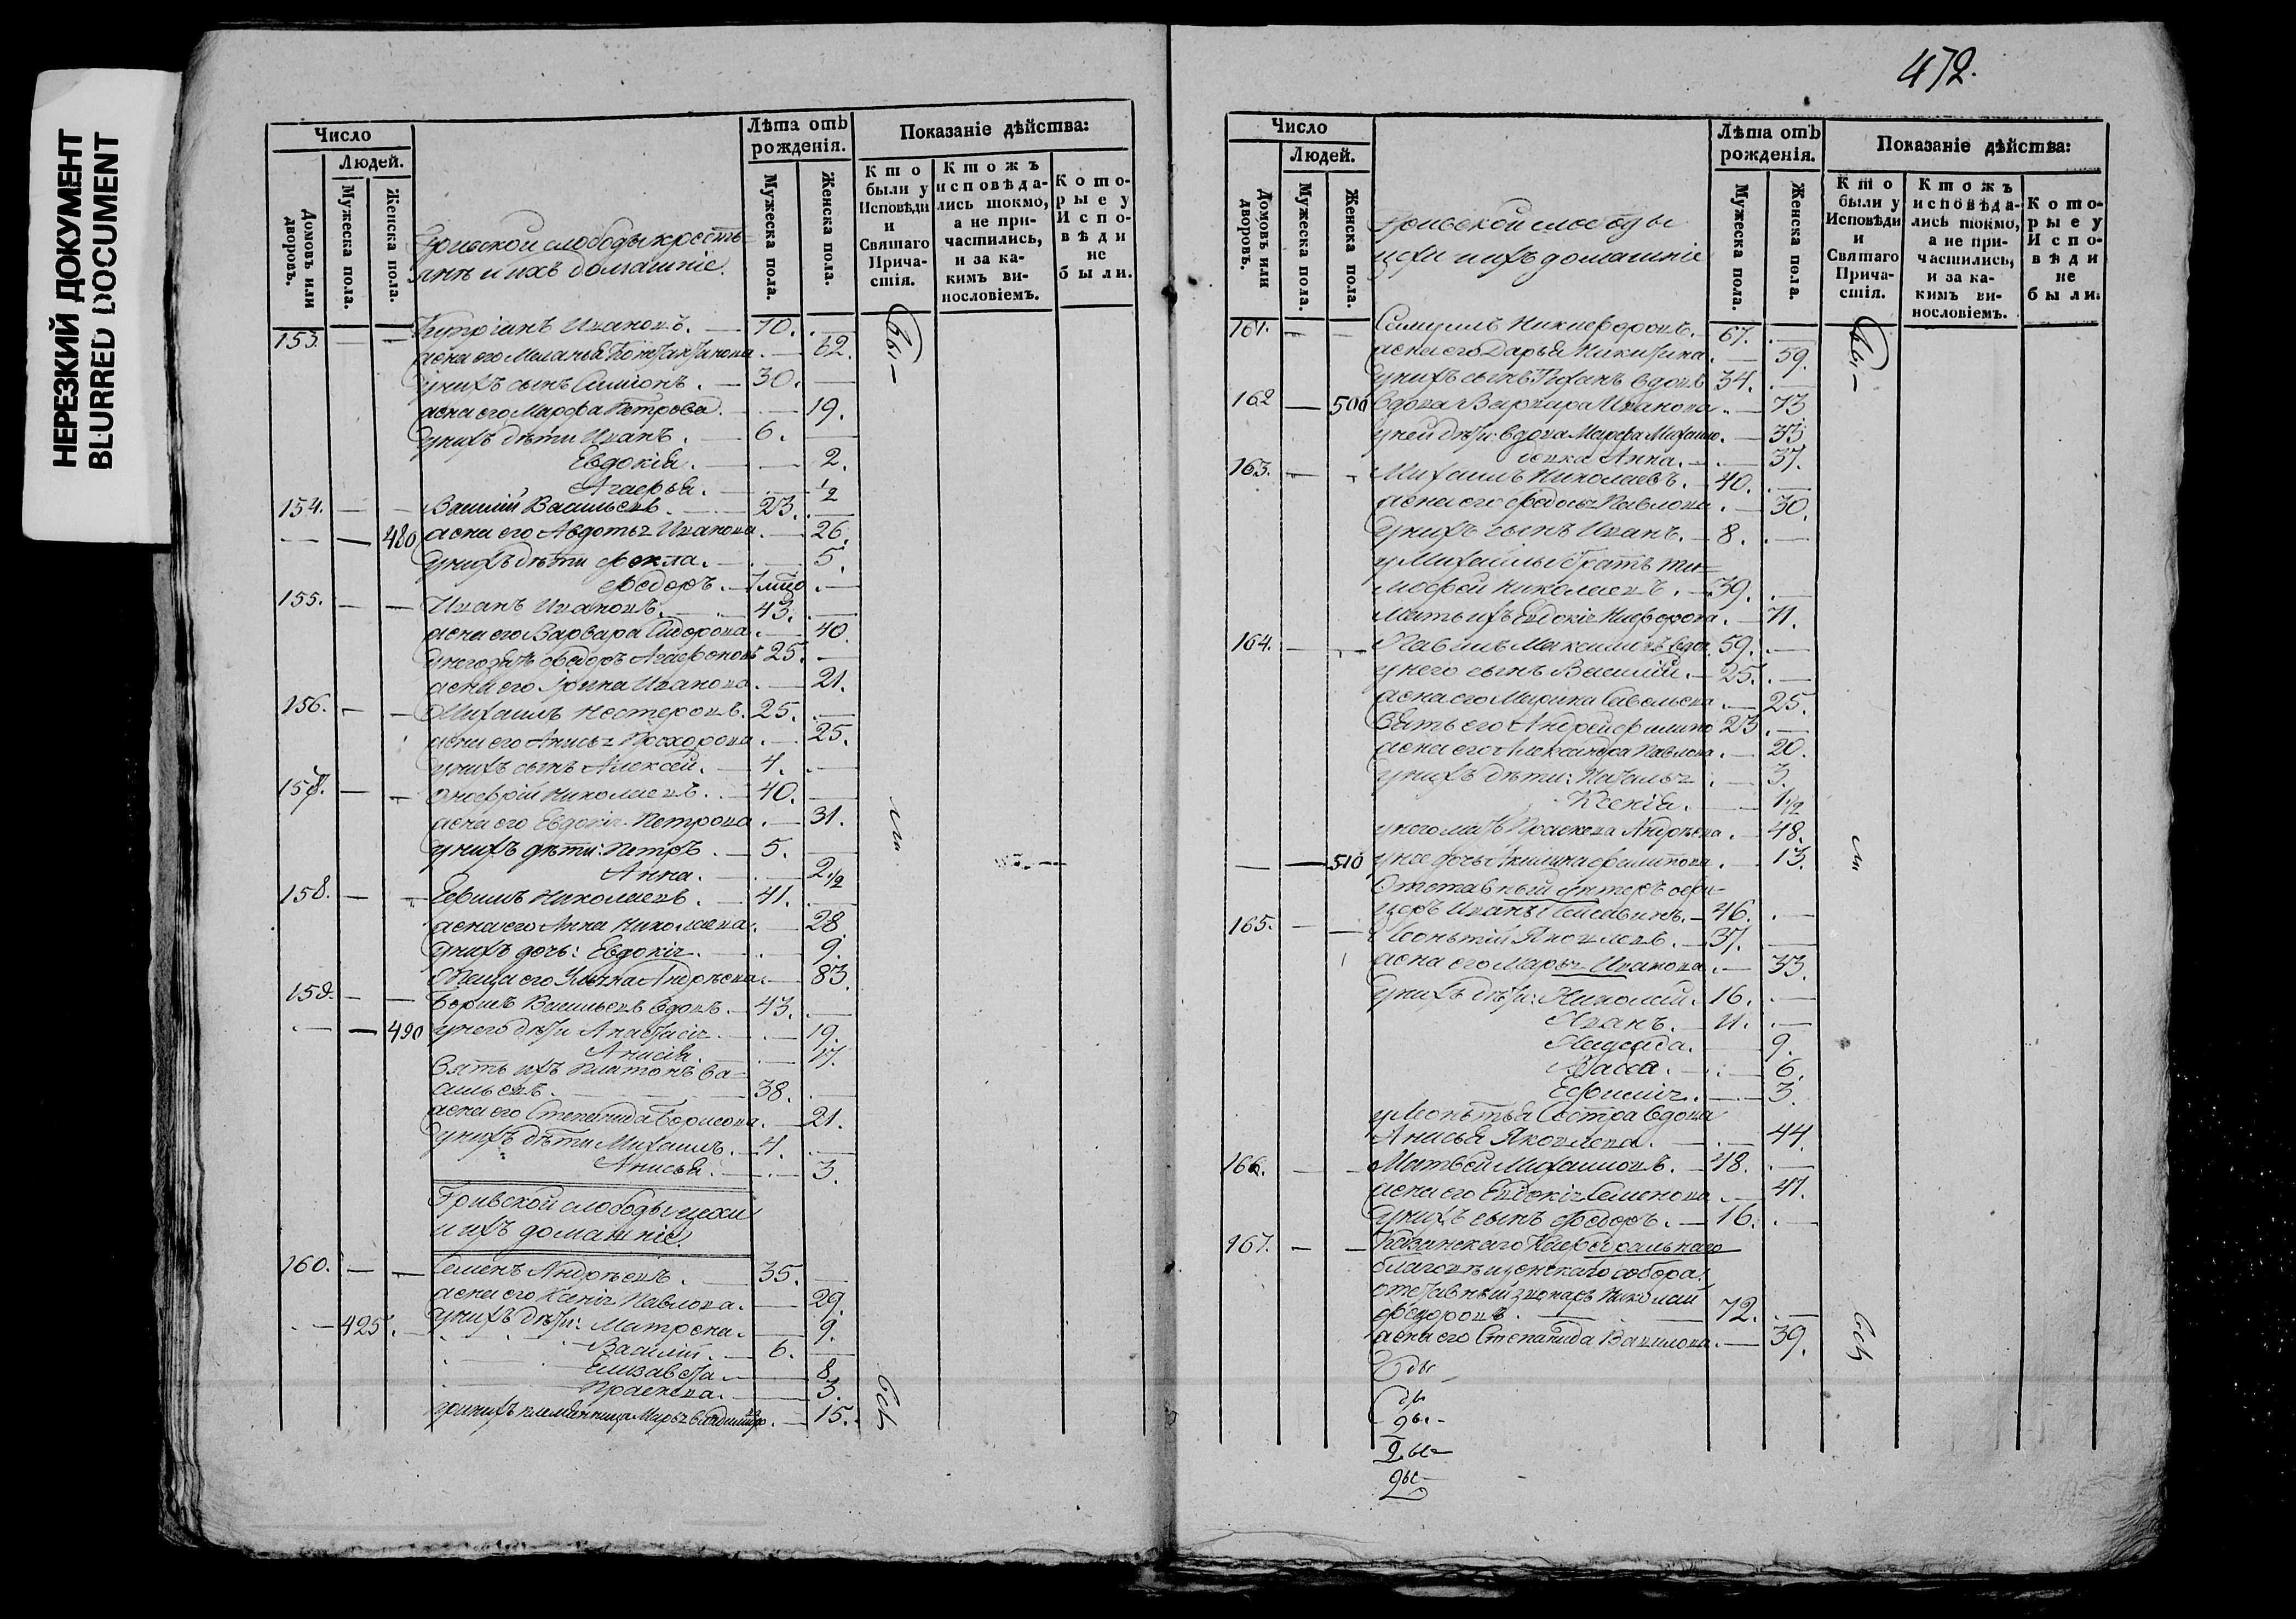 НЕРЕЗКИЙ ДОКУМЕНТ
BLURRED DOCUMENT
Число
Людей.
Домовъ или дворовъ.
Мужеска пола.
Женска пола.
слободы крестъ-
янъ и ихъ домашнiе.
Лѣта отъ рожденiя.
Мужеска пола.
Женска пола.
Показанiе дѣйства:
Кто были у Исповѣди и Святаго Прича- стiя.
Ктожъ исповѣда- лись токмо, а не при- частились, и за ка- кимъ ви- нословiемъ.
Кото- рые у Испо- вѣди не были.
153. Ивановъ. 70.
жена его Меланья 62.
у нихъ сынъ Симионъ. 30.
жена его Марфа Петрова. 19.
у нихъ дѣти Иванъ. 6.
Евдокiя. 2.
Агафья. 1/2
154. Василiй Васильевъ. 23.
480 жена его Авдотья Иванова 26.
у нихъ дѣти Фекла. 5.
Федоръ.
155. Иванъ Ивановъ. 43.
жена его Варвара Сидорова. 40.
у него зять Федоръ Агафоновъ 25.
жена его Ирина Иванова. 21.
156. Михаилъ Нестеровъ. 25.
жена его Анисья Прохорова. 25.
у нихъ сынъ Алексей. 4.
157. Николаевъ. 40.
жена его Евдокiя Петрова 31.
у нихъ дѣти: Петръ. 5.
Анна. 2 1/2
158. Ефимъ Николаевъ. 41.
жена его Анна Николаева. 28.
у нихъ дочь: Евдокiя. 9.
его Андрѣева. 83.
159. Борисъ Васильевъ вдовъ. 43.
490 у него дѣти Анастасiя. 19.
Анисiя. 17.
Зять ихъ Платонъ Ва-
сильевъ. 38.
жена его Степанида Борисова. 21.
у нихъ дѣти Михаилъ. 4.
Анисья. 3.
Гривской слободы цехи
и ихъ домашнiе.
160. Семенъ Андрѣевъ. 35.
жена его Павлова. 29.
425. у нихъ дѣти: Матрена. 9.
Василiй. 6.
Елизавета. 8.
Праскева. 3.
племянница Марья 15.
Бы-
ли
всѣ
472.
Число
Людей.
Домовъ или дворовъ.
Мужеска пола.
Женска пола.
Гривской слободы
цехи и ихъ домашнiе
Лѣта отъ рожденiя.
Мужеска пола.
Женска пола.
Показанiе дѣйства:
Кто были у Исповѣди и Святаго Прича- стiя.
Ктожъ исповѣда- лись токмо, а не при- частились, и за ка- кимъ ви- нословiемъ.
Кото- рые у Испо- вѣди не были.
161. Самуилъ Никифоровъ. 67.
жена его Дарья Никитина. 59.
у нихъ сынъ вдовъ 34.
162 500 вдова Варвара Иванова 73
у ней дѣти: вдова Марфа Михаило- 33
Анна. 37.
163. Михаилъ Николаевъ. 40.
жена его Федосья Павлова. 30.
у нихъ сынъ Иванъ. 8.
у Михайлы братъ Ти-
мофей Николаевъ. 39.
Мать ихъ Евдокiя 71.
164. Павилъ Максимовъ вдов. 59.
у него сынъ Василiй. 25.
жена его Марина Савельева 25.
Зять его Андрей 23.
жена его Александра Павлова. 20.
у нихъ дѣти: Наталья 3.
Ксенiя. 1 1/2
у него мать Праскева Андрѣева. 48.
510 у нее дочь Акилина Филипова. 13.
Отставный унтеръ офи-
церъ Иванъ 46.
165. Леонтiй Яковлевъ. 37.
жена его Марья Иванова. 33.
у нихъ дѣти: Николай. 16.
Иванъ. 11.
Надежда. 9.
Васса. 6.
Ефимiя. 3.
у Леонтья сестра вдова
Анисья Яковлева. 44.
166. Матвей Михаиловъ. 48.
жена его Евдокiя Семенова 47.
у нихъ сынъ Федоръ. 16.
167. Казанскаго Кафедральнаго
благовѣщенскаго собора
отставный звонарь Николай
Федоровъ. 72.
жена его Степанида 39.
Бы-
ли
всѣ